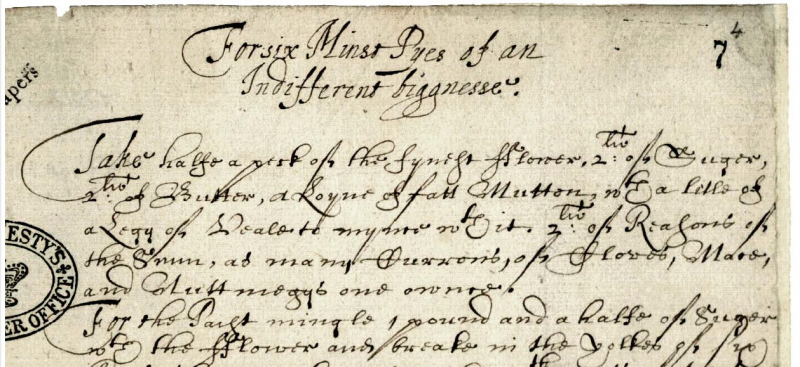 4
7
For six Minst Pyes of an
Indifferent biggnesse.
apers
Take halfe a peck of the fynest fflower, 2:li of Suger,
2:li of Butter, a Loyne of fatt Mutton, wth a litle of
a Legg of Veale to mynce wth it. 2:li of Reasons of
the Sunn, as many Currons, of Cloves, Mace,
and Nuttmeggs one ownce.
For the Past mingle 1 pound and a halfe of Suger
wth the fflower and breake in the yolkes of six
ESTY'S
ER OFFICE